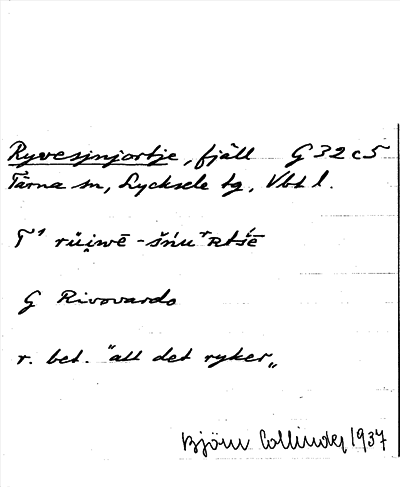 Ryvesjnjortje, fjäll G 32 c 5
Tärna sn, Lycksele tg, Vbt l.
T¹ rŭi̯wē - šńu ʳʀtśē
G Rivovardo
r. bet. "att det ryker„
Björn Collinder 1937